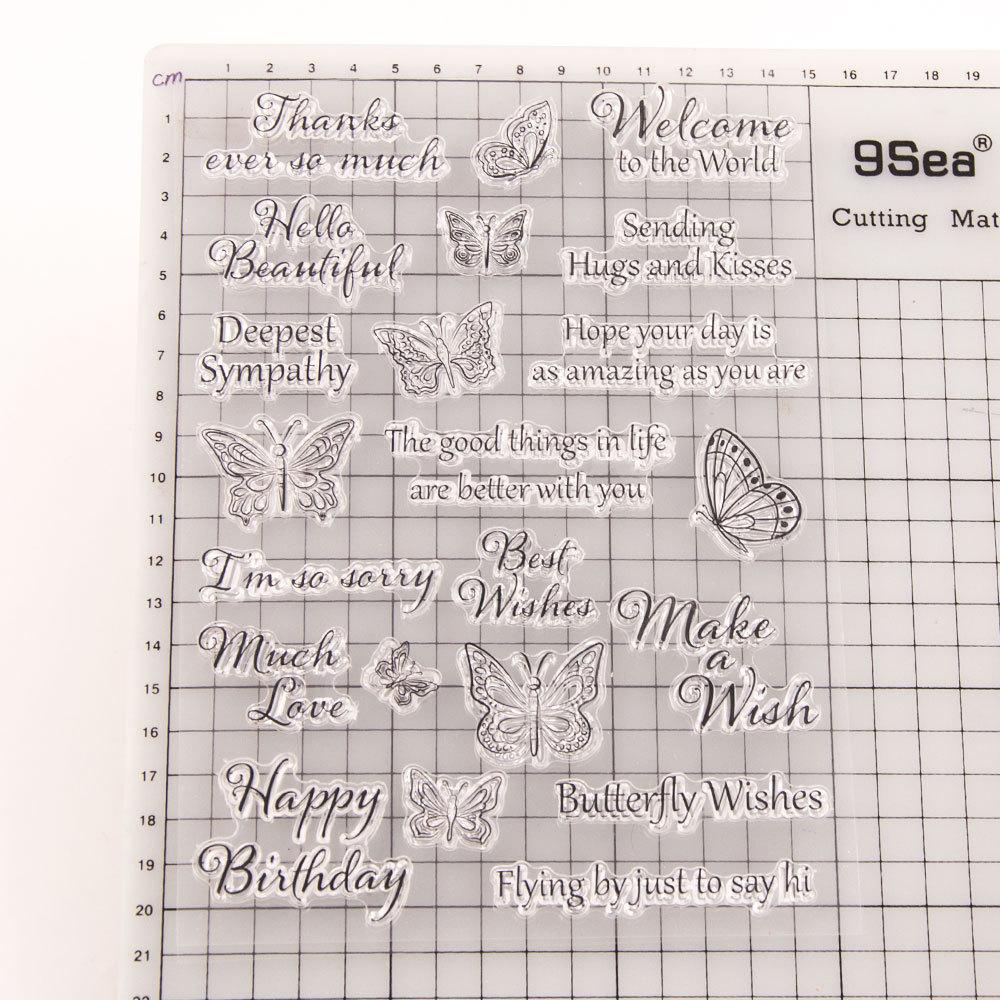 cm
1 2 3 4 5 6 7 8 9 10 11 12 13 14 15 16 17 18 19
1
2
3
4
5
6
7
8
9
10
11
12
13
14
15
16
17
18
19
20
21
22
9Sea®
Cutting Mat
Thanks
ever so much
Welcome
to the World
Hello
Beautiful
Sending
Hugs and Kisses
Deepest
Sympathy
Hope your day is
as amazing as you are
The good things in life
are better with you
I'm so sorry
Best
Wishes
Make
a
Wish
Much
Love
Happy
Birthday
Butterfly Wishes
Flying by just to say hi